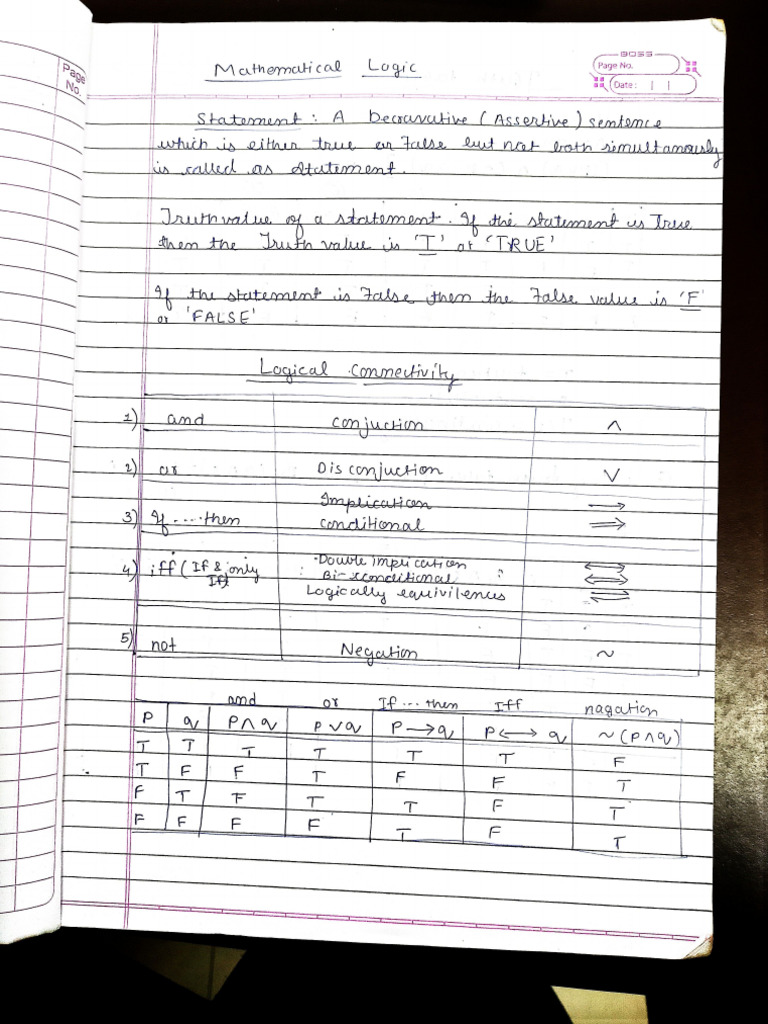 Page No.
BOSS
Page No.
Date: | |
Mathematical Logic
Statement : A Decravative (Assertive) sentence
which is either true or False but not both simultanously
is called as statement.
Truth value of a statement. If the statement is True
then the Truth value is 'T' or 'TRUE'
If the statement is False then the False value is 'F'
or 'FALSE'
Logical Connectivity
1) and conjuction ∧
2) or Disconjuction ∨
Implication →
3) If ....then conditional ⇒
Double implication ⟷
4) iff (If & only If) Bi-conditional ⇔
Logically equivilences ⇌
5) not Negation ~
and or If...then Iff nagation
P q P∧q P∨q P→q P⟷q ~(P∧q)
T T T T T T F
T F F T F F T
F T F T T F T
F F F F T F T